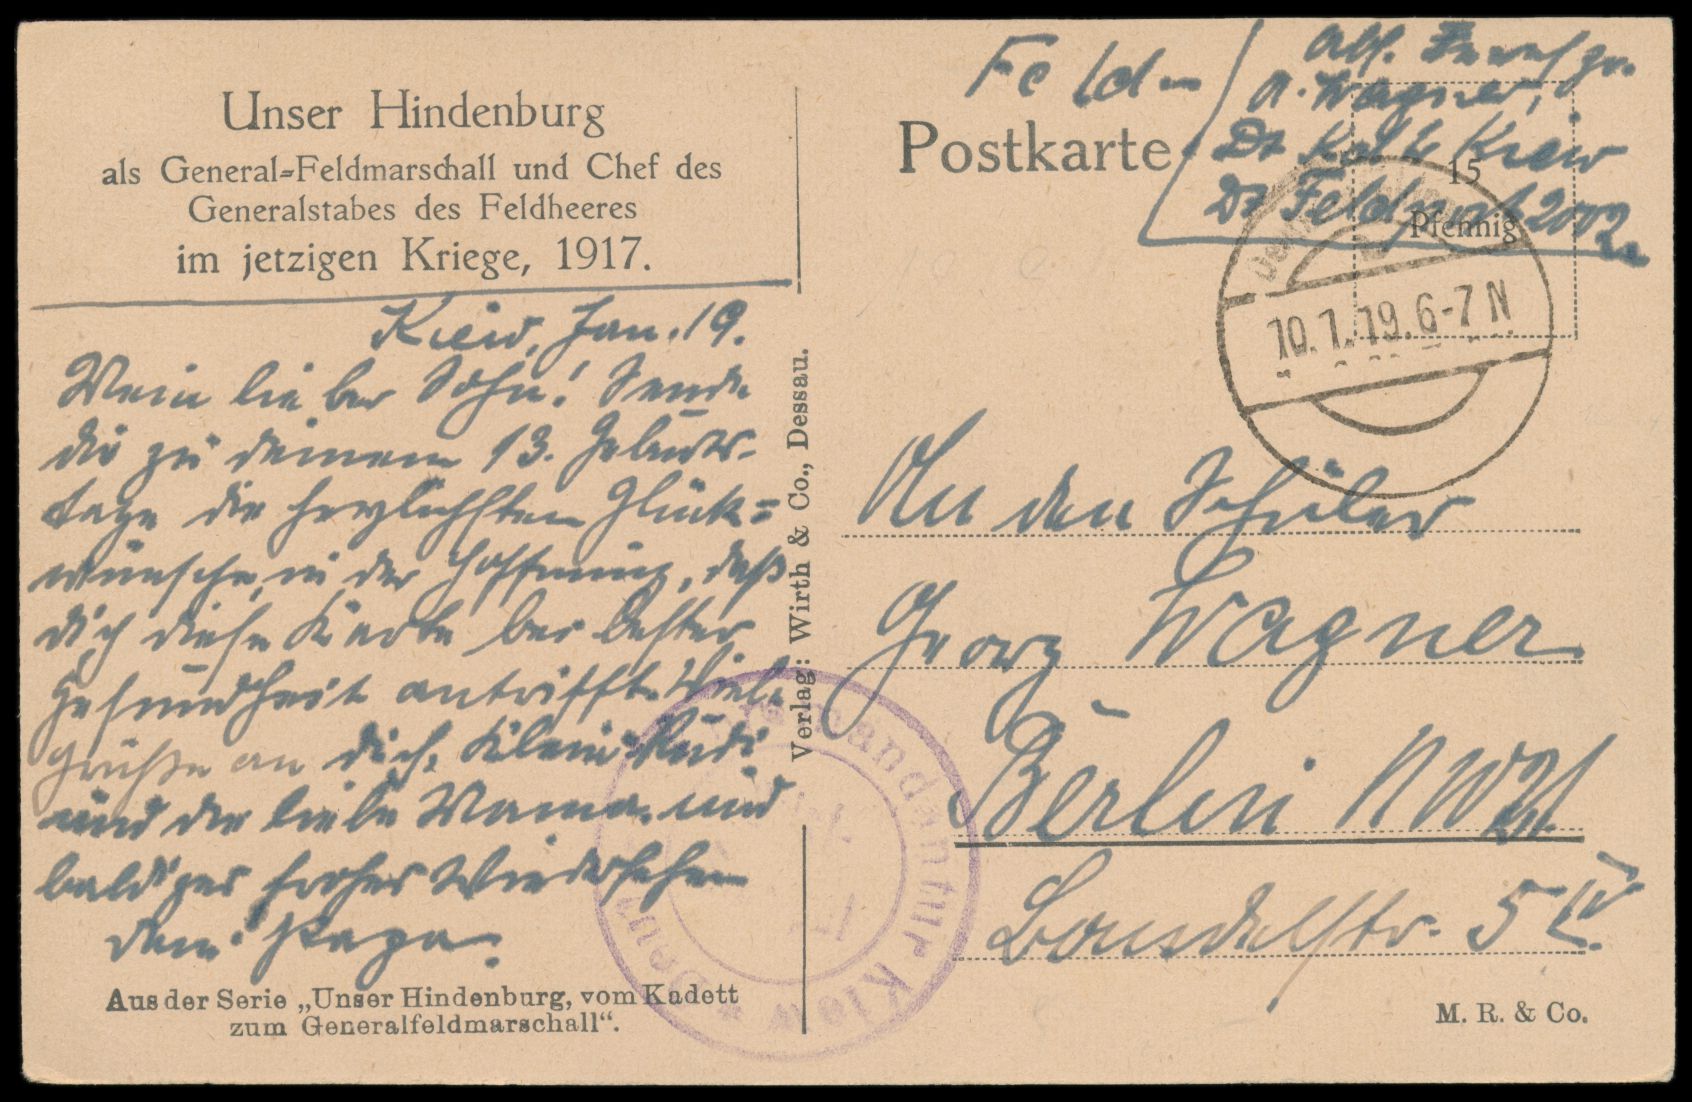 Unser Hindenburg
als General-Feldmarschall und Chef des
Generalstabes des Feldheeres
im jetzigen Kriege, 1917.
Kiew, Jan. 19.
Mein lieber Sohn! Sende
dir zu deinem 13. Geburts-
tage die herzlichsten Glück=
wünsche, in der Hoffnung, daß
dich diese Karte bei bester
Gesundheit antrifft. Viele
Grüße an dich, Klein Rudi
und die liebe Mama, und
baldiges frohes Wiedersehen
dein Papa.
Aus der Serie „Unser Hindenburg, vom Kadett
zum Generalfeldmarschall“.
Verlag: Wirth & Co., Dessau.
Feld-
Postkarte
Abs.
A. Wagner,
Dt. Kiew
Dt. Feldpost 2002
15
Pfennig
10.1.19.6-7 N
An den Schüler
Georg Wagner
Berlin NW 21
Bandelstr. 5 IV
M. R. & Co.
Kommandantur Kiew